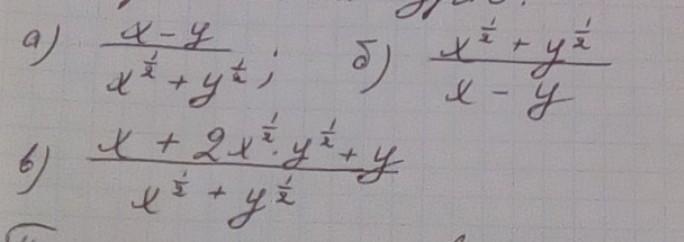 а) (x - y)/(x^(1/2) + y^(1/2)); б) (x^(1/2) + y^(1/2))/(x - y)
в) (x + 2x^(1/2) · y^(1/2) + y)/(x^(1/2) + y^(1/2))